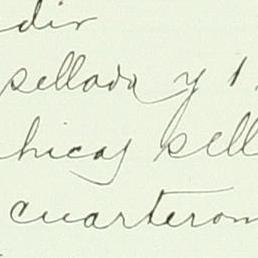 dir
sellada y 1
hicas sell
cuarteron